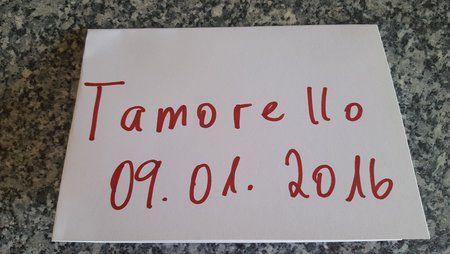 Tamorello
09.01.2016